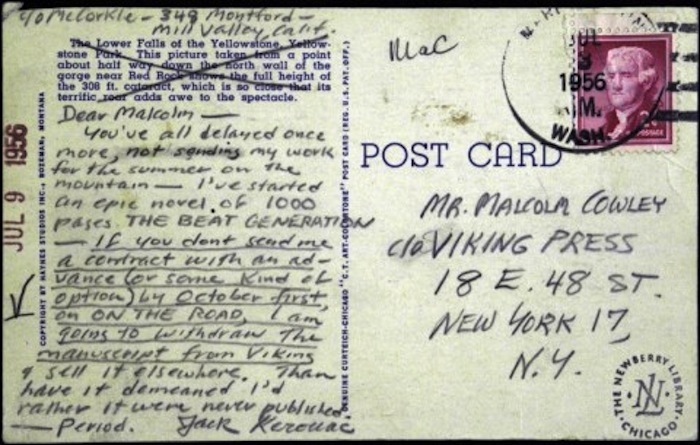 c/o McCorkle – 348 Montford –
Mill Valley, Calif.
The Lower Falls of the Yellowstone, Yellow-
stone Park. This picture taken from a point
about half way down the north wall of the
gorge near Red Rock shows the full height of
the 308 ft. cataract, which is so close that its
terrific roar adds awe to the spectacle.
Dear Malcolm —
You've all delayed once
more, not sending my work
for the summer on the
mountain — I've started
an epic novel of 1000
pages THE BEAT GENERATION
— If you dont send me
a contract with an ad-
vance (or some kind of
option) by October first,
on ON THE ROAD, I am
going to withdraw the
manuscript from Viking
& sell it elsewhere. Than
have it demeaned I'd
rather it were never published
— Period. Jack Kerouac
JUL 9 1956
COPYRIGHT BY HAYNES STUDIOS INC., BOZEMAN, MONTANA
GENUINE CURTEICH-CHICAGO "C.T. ART-COLORTONE" POST CARD (REG. U.S. PAT. OFF.)
MaC
POST CARD
JUL
3
1956
M.
WASH.
POSTAGE
MR. MALCOLM COWLEY
c/o VIKING PRESS
18 E. 48 ST.
NEW YORK 17,
N.Y.
THE NEWBERRY LIBRARY
CHICAGO